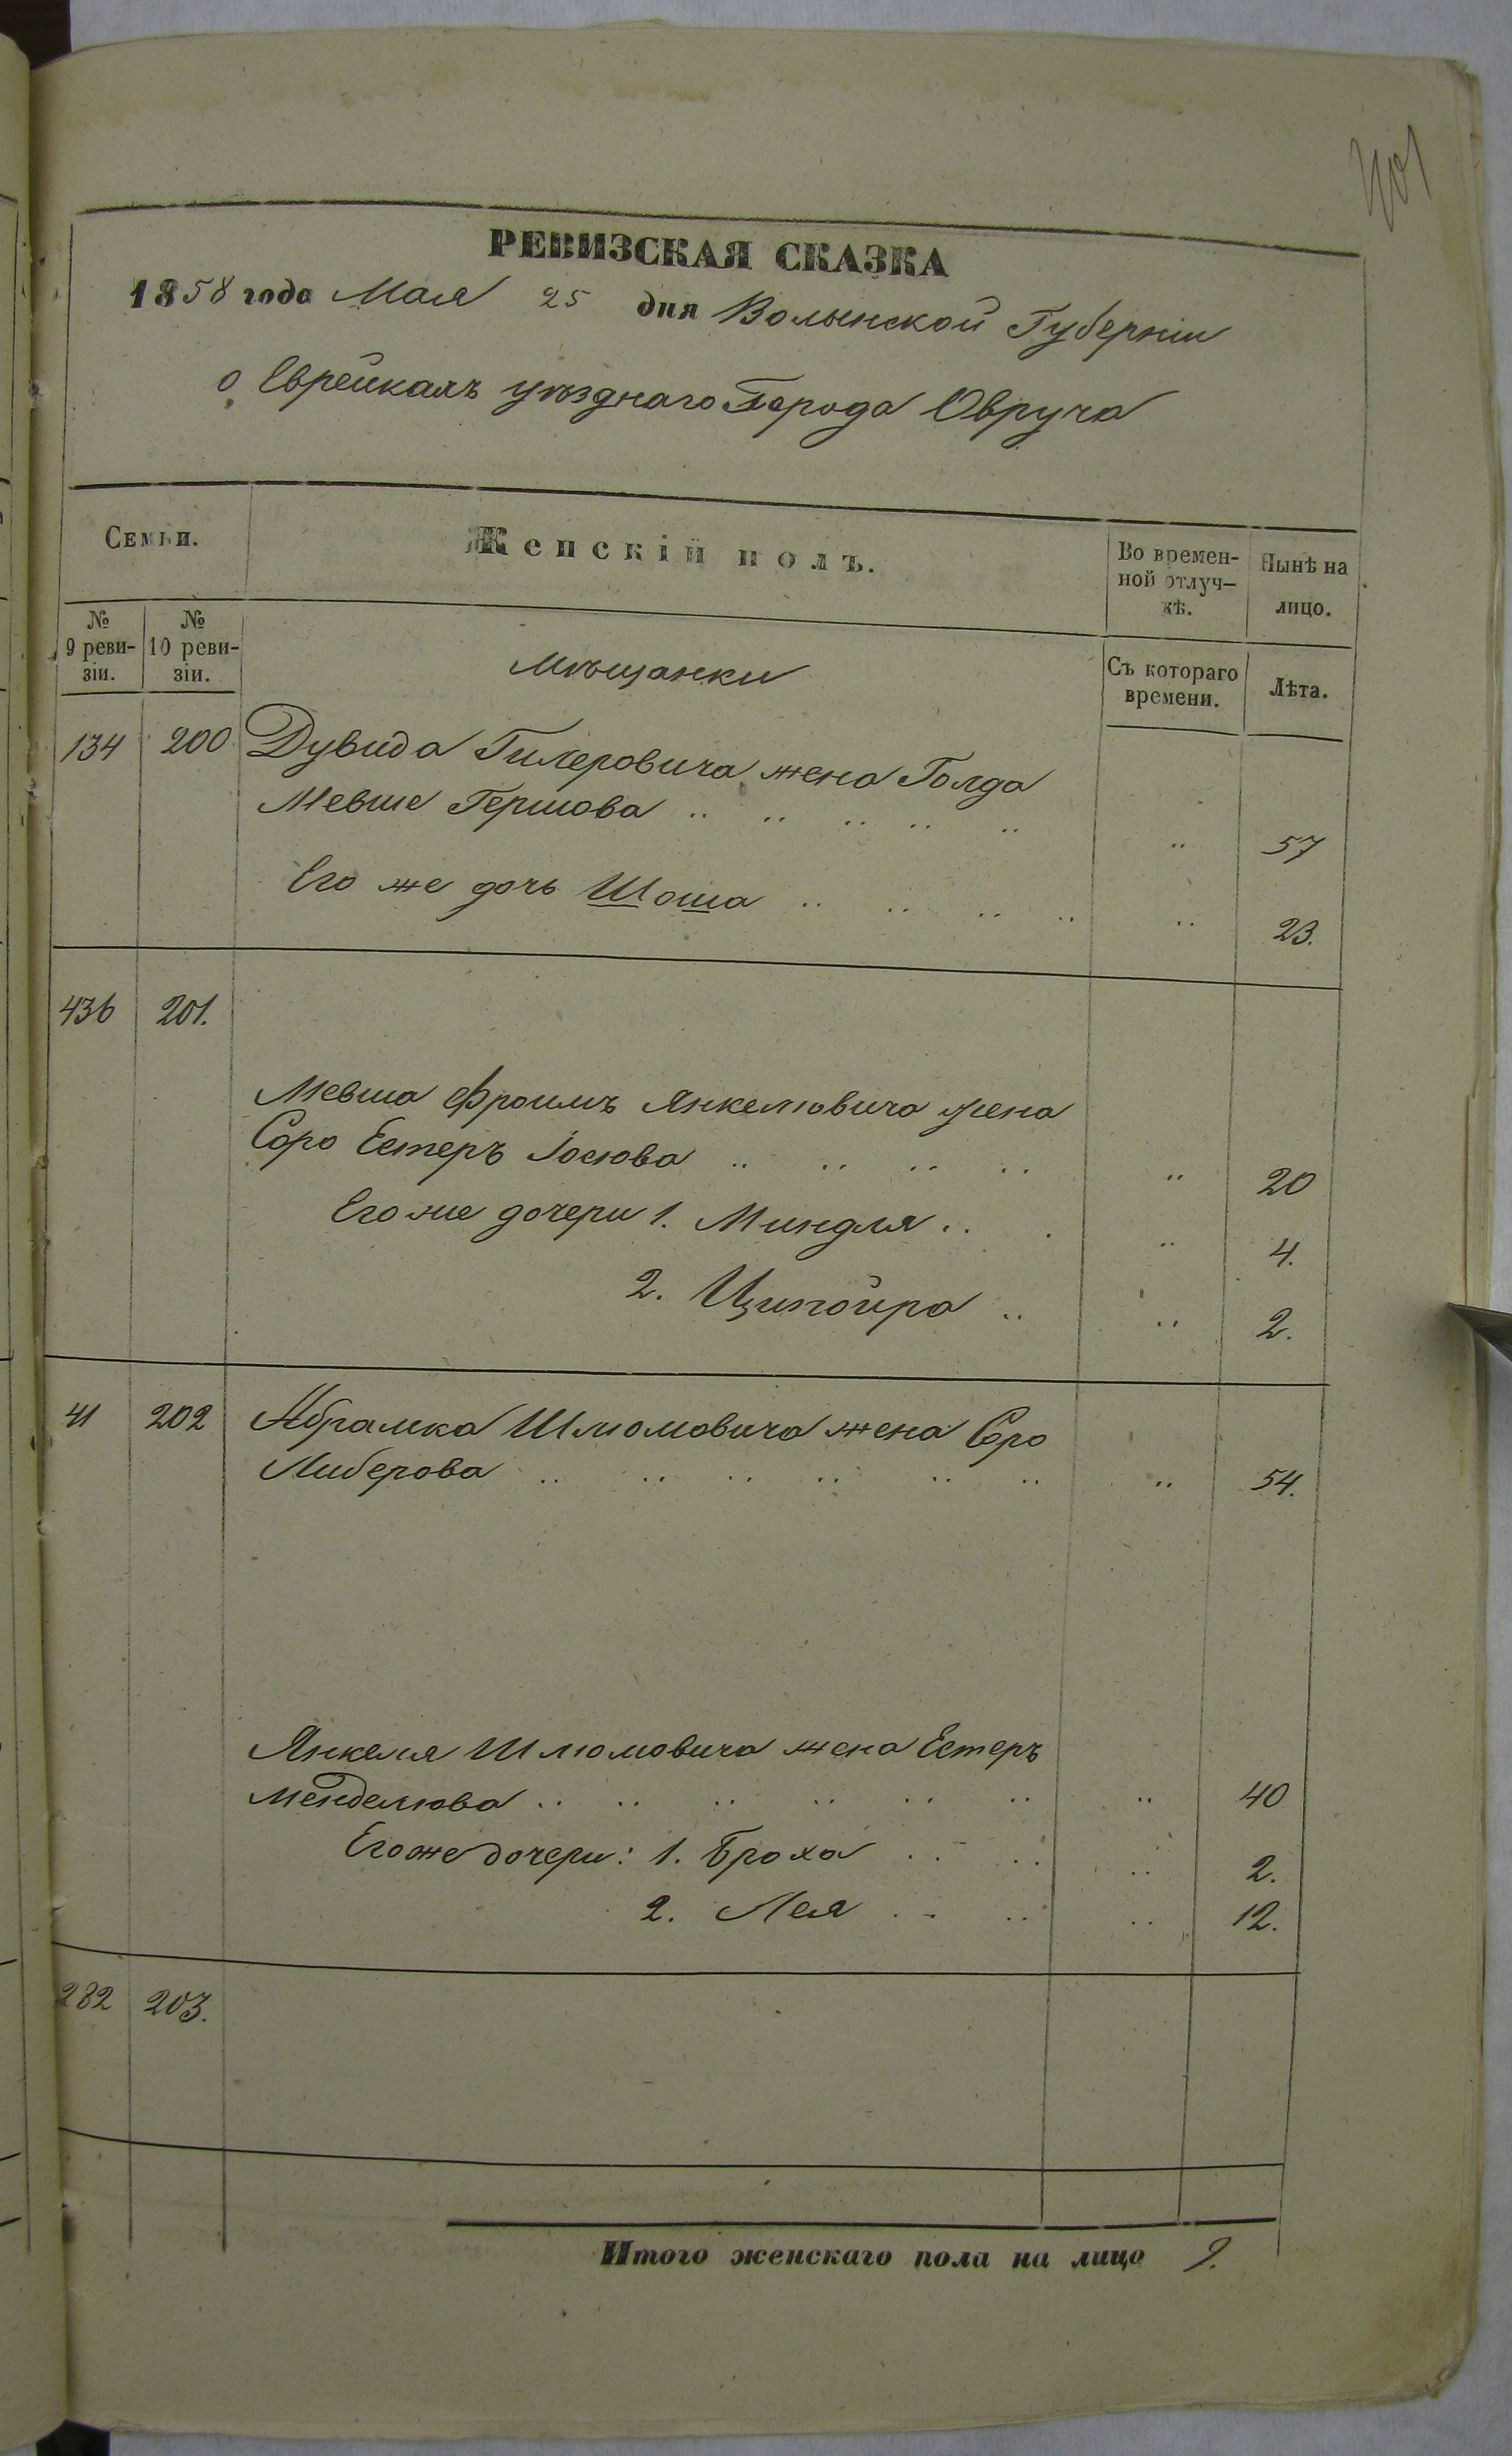 401
РЕВИЗСКАЯ СКАЗКА
1858 года Мая 25 дня Волынской Губерніи
о Еврейкахъ уѣзднаго Города Овруча
Семьи.
Женскій полъ.
Во времен-
ной отлуч-
кѣ.
Нынѣ на
лицо.
№
9 реви-
зіи.
№
10 реви-
зіи.
Мѣщанки
Съ котораго
времени.
Лѣта.
134 200 Дувида Гилеровича жена Голда
Мевше Гершова .. .. .. .. .. .. 57
Его же дочь Шоша .. .. .. .. .. 23.
436 201.
Мевша Фроимъ Янкелювича жена
Соро Естеръ Іосюва .. .. .. .. .. 20
Его же дочери 1. Миндля .. . .. 4.
2. Ципойра .. .. 2.
41 202 Абрамка Шлюмовича жена Соро
Либерова .. .. .. .. .. .. .. 54.
Янкеля Шлюмовича жена Естеръ
Менделюва .. .. .. .. .. .. .. 40
Его же дочери: 1. Броха .. .. .. 2.
2. Лея .. .. .. 12.
282 203.
Итого женскаго пола на лицо 9.